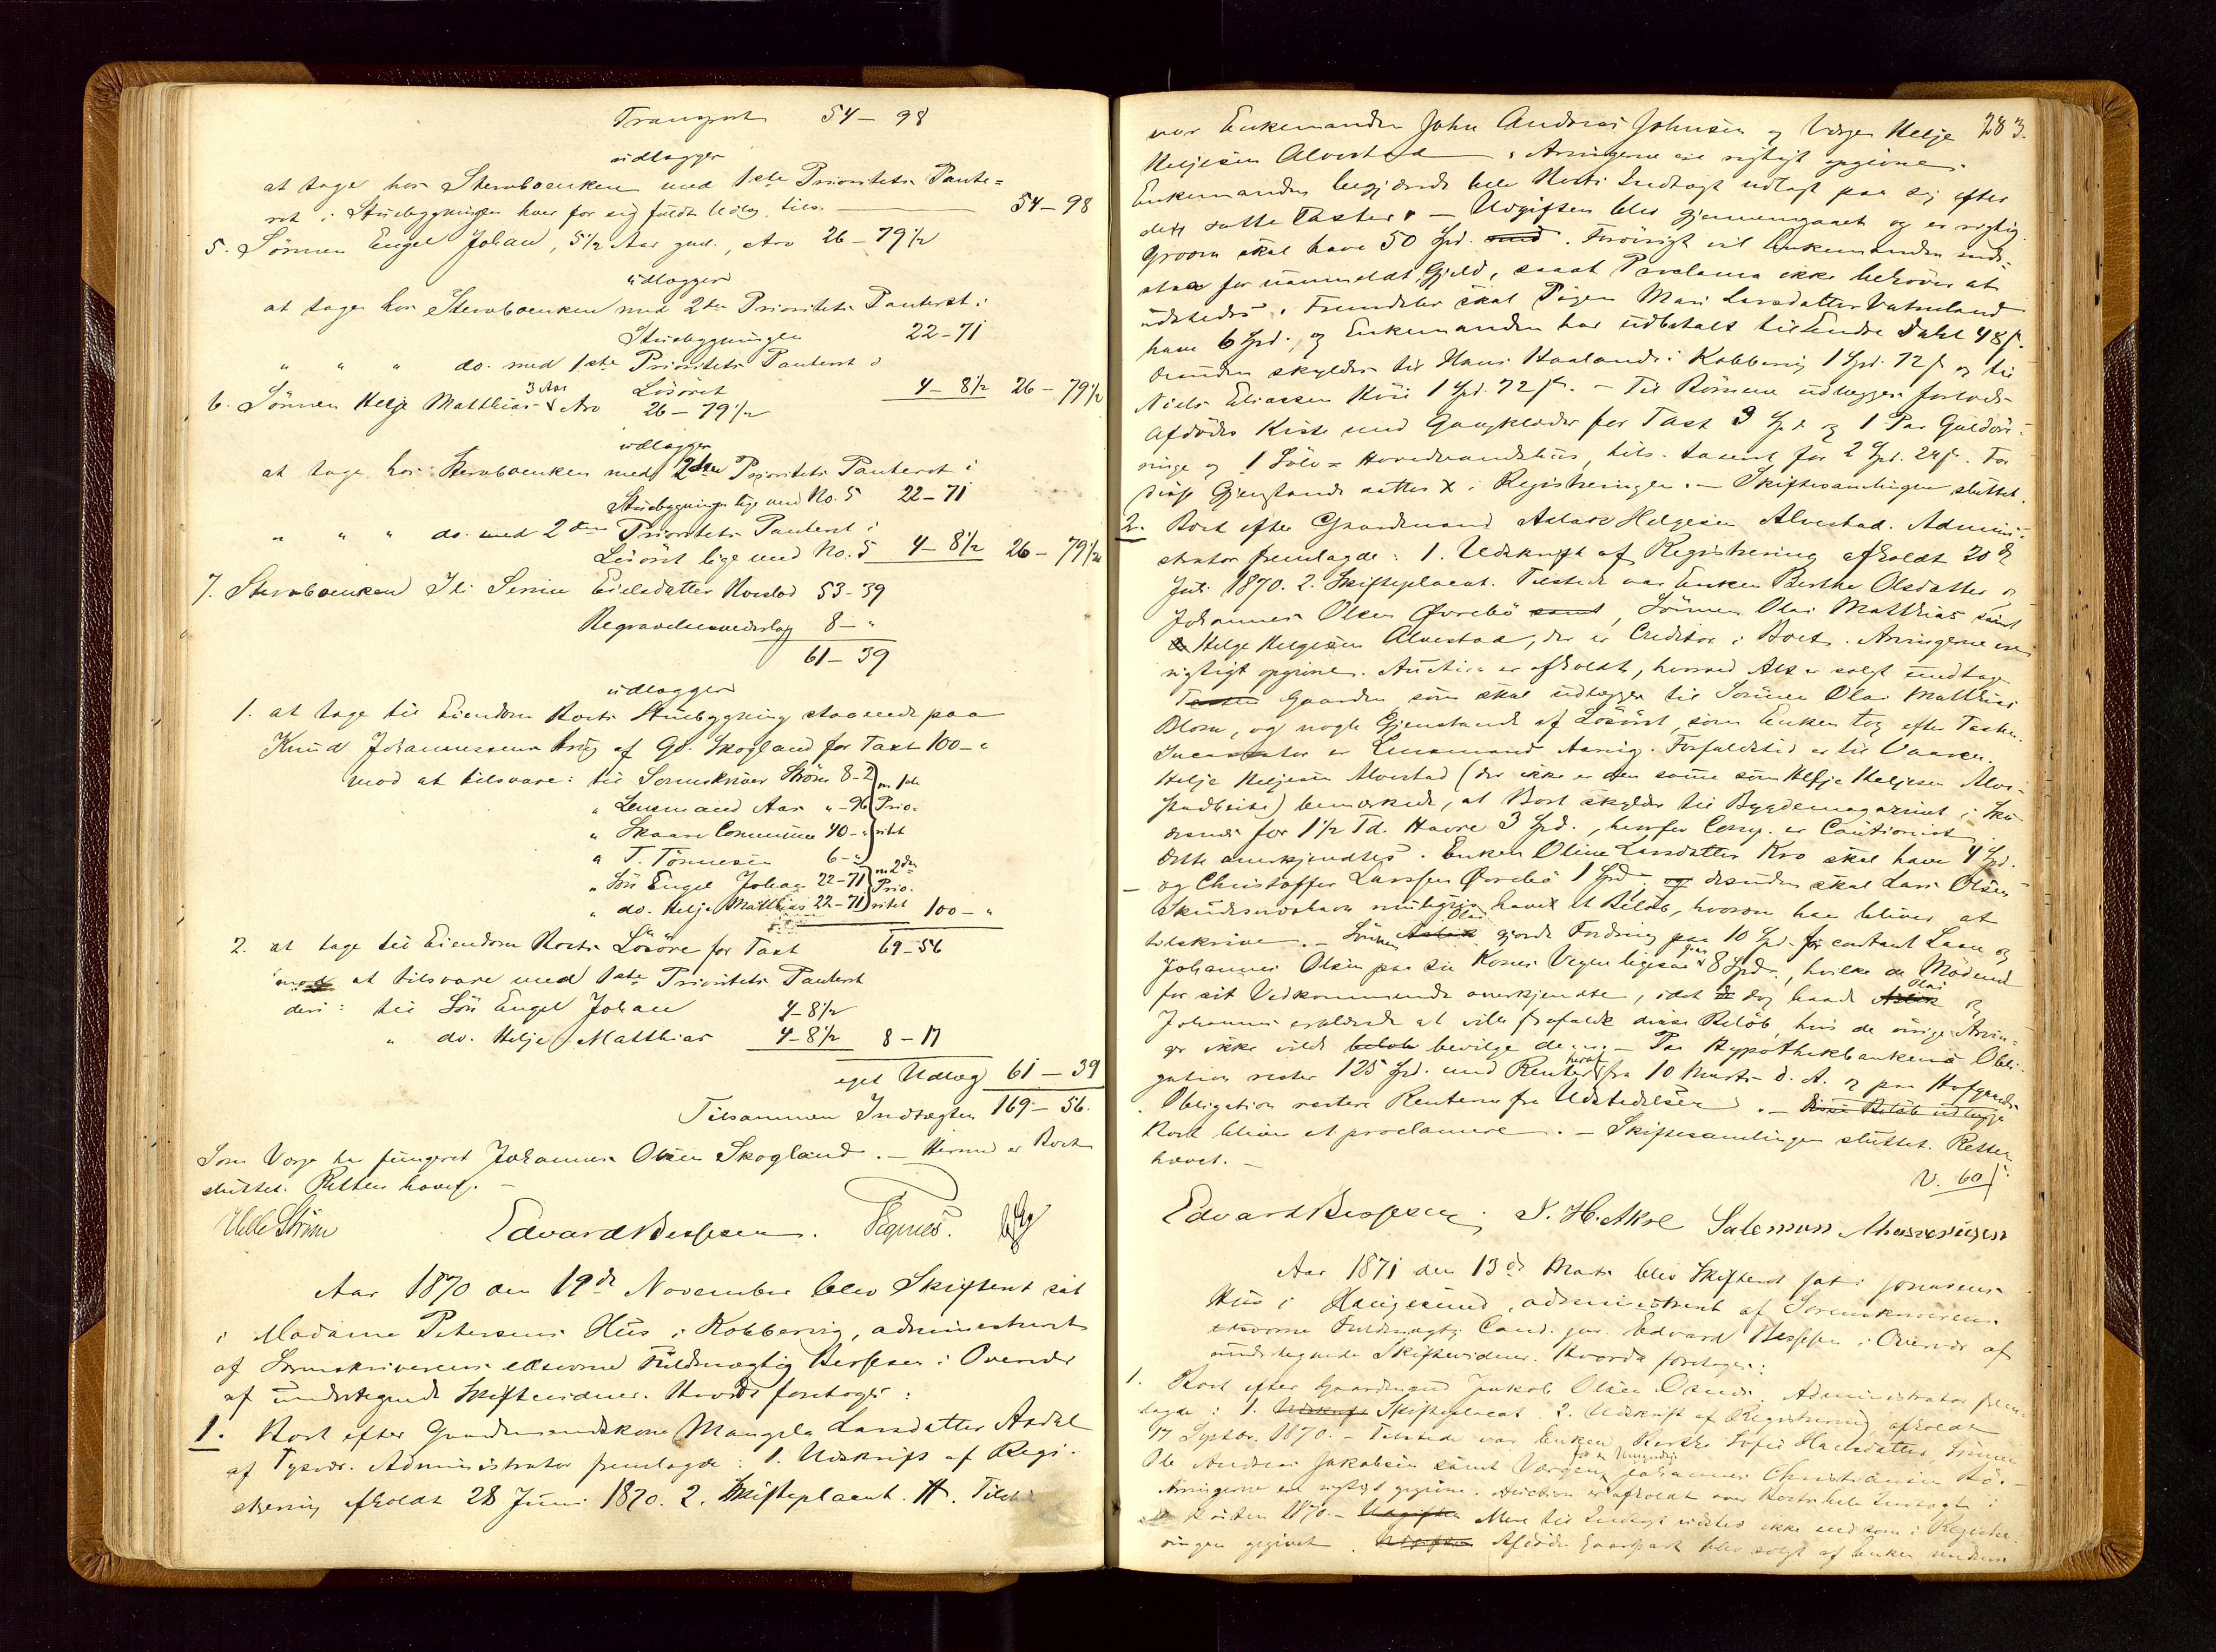 Transport 54 - 98
udlægges
at tage hos Stervboenken med 1ste Prioritets Pante=
ret i Stuebygningen hver for sig fuldt Udlæg, tils. 54-98
5. Sönnen Engel Johan, 5 1/2 Aar gml., Arv 26-79 1/2
udlægges
at tage hos Stervboenken med 2den Prioritets Panteret i
Stuebygningen 22-71
" " " do. med 1ste Prioritets Panteret i
Lösöret 4-8 1/2 26-79 1/2
6. Sönnen Helje Matthias 3 Aar Arv 26-79 1/2
udlægges
at tage hos Stervboenken med 2den Prioritets Panteret i
Stuebygningen lige med No. 5 22-71
" " " do. med 2den Prioritets Panteret i
Lösöret lige med No. 5 4-8 1/2 26-79 1/2
7. Stervboenken Serine Eielsdatter 53-39
Begravelsesvederlag 8-"
61-39
udlægges
1. at tage til Eiendom Boets Stuebygning staaende paa
Knud Johannessens Brug af Gd. Skogland for Taxt 100-"
mod at tilsvare: til Sorenskriver Ström 8-2
" Lensmand Aar "-96
" Skaare Commune 40-"
" T. Tönnesen 6-"
m. 1ste Prioritet
" Sön Engel Johan 22-71
" do. Helje Matthias 22-71
m 2den Prioritet 100-"
2. at tage til Eiendom Boets Lösöre for Taxt 69-56
mod at tilsvare med 1ste Prioritets Panteret
deri: til Sön Engel Johan 4-8 1/2
" do. Helje Matthias 4-8 1/2 8-17
eget Udlæg 61-39
Tilsammen Indtægten 169-56.
Som Værge har fungeret Johannes Olsen Skogland. - Hermed er Boet
sluttet. Retten hævet. -
Ulle Ström Edvard Bessesen.
Aar 1870 den 19de November blev Skifteret sat
i Madame Petersens Hus i Kobbervig, administreret
af Sorenskriverens edsvorne Fuldmægtig Bessesen i Overvær
af undertegnede Skiftevidner. Hvorda foretoges:
1. Boet efter Gaardmandskone Mangela Larsdatter Aadal
af Tysvær. Administrator fremlagde: 1. Udskrift af Regi-
strering afholdt 28 Juni 1870. 2. Skifteplacat. Tilstede
283.
var Enkemanden John Andreas Johnsen og Værgen Helje
Heljesen Alvestad. Arvingerne ere rigtigt opgivne.
Enkemanden begjærede hele Boets Indtægt udlagt paa sig efter
dets satte Taxter. - Udgiften blev gjennemgaaet og er rigtig.
Groven skal have 50 Spd. med. Forövrigt vil Enkemanden inde-
staa for uanmeldt Gjeld, saaat Proclama ikke behöver at
udstedes. Fremdeles skal Pigen Mari Larsdatter Vatneland
have 6 Spd., og Enkemanden har udbetalt til Endre Dahl 48 s.
Desuden skyldes til Hans Haaland i Kobbervig 1 Spd. 72 s og til
Niels Eliassen 1 Spd. 72 s. - Til Börnene udlægges forlods
Afdödes Kiste med Gangklæder for Taxt 3 Spd. og 1 Par Guldöre-
ringe og 1 Sölv= Hovedvandshuus, tils. taxeret for 2 Spd. 24 s. For
disse Gjenstande sættes X i Registreringen. - Skiftesamlingen sluttet.
2. Boet efter Gaardmand Aslak Helgesen Alvestad. Admini-
strator fremlagde: 1. Udskrift af Registrering afholdt 20de
Juli 1870. 2. Skifteplacat. Tilstede var Enken Berthe Olsdatter og
Johannes Olsen Övrebö samt, Sönnen Olai Matthias samt
Helge Helgesen Alvestad, der er Creditor i Boet. Arvingerne ere
rigtigt opgivne. Auction er afholdt, hvorved Alt er solgt undtagen
Gaarden som skal udlægges til Sönnen Olai Matthias
og nogle Gjenstande af Lösöret, som Enken tog efter Taxten.
Incassator er Lensmand Forfaldstid er til Vaaren.
Helje Heljesen Alvestad (der ikke er den samme som Helje Heljesen Alve-
stad) bemærkede, at Boet skylder til Bygdemagazinet i
for 1 1/2 Td. Havre 3 Spd., hvorfor Comp. er Cautionist.
Dette anerkjendtes. Enken Oline Larsdatter Kro skal have 4 Spd.
- og Christoffer Larssen Övrebö 1 Spd., og desuden skal Lars Olsen
Skudesneshavn muligvis have et Belöb, hvorom han bliver at
tilskrive. - Sönnen Olai gjorde Fordring paa 10 Spd. for contant Laan og
Johannes Olsen paa sin Kones Vegne ligesaa 8 Spd., hvilke de Mödende
for sit Vedkommende anerkjendte, idet dog baade Olai og
Johannes erklærede at ville frafalde disse Belöb, hvis de övrige Arvin-
ger ikke vilde bevilge dem. - Paa Hypothekbankens Obli-
gation rester 125 Spd. med Renter heraf fra 10 Marts d. A. og paa Hofgaards
Obligation restere Renterne fra Udstedelsen. - Disse Belöb udlægges
Boet bliver at proclamere. - Skiftesamlingen sluttet. Retten
hævet. -
V. 60 s.
Edvard Bessesen. Salemon
Aar 1871 den 13de Marts blev Skifteret sat i
Hus i Haugesund, administreret af Sorenskriverens
edsvorne Fuldmægtig Cand. jur. Edvard Bessesen i Overvær af
undertegnede Skiftevidner. Hvorda foretoges:
1. Boet efter Gaardmand Jakob Olsen Administrator frem-
lagde: 1. Udskrift Skifteplacat. 2. Udskrift af Registrering afholdt
17 Septbr. 1870. - Tilstede var Enken Sofie Hansdatter, Sönnen
Ole Andreas Jakobsen samt Værgen Johannes Christiansen
Arvingerne ere rigtigt opgivne. Auction er afholdt over Boets hele Indtægt i
Hösten 1870. - Udgiften Mere til Indtægt vidstes ikke end som i Registre-
ringen opgivet. Udgiften Afdödes blev solgt af Enken